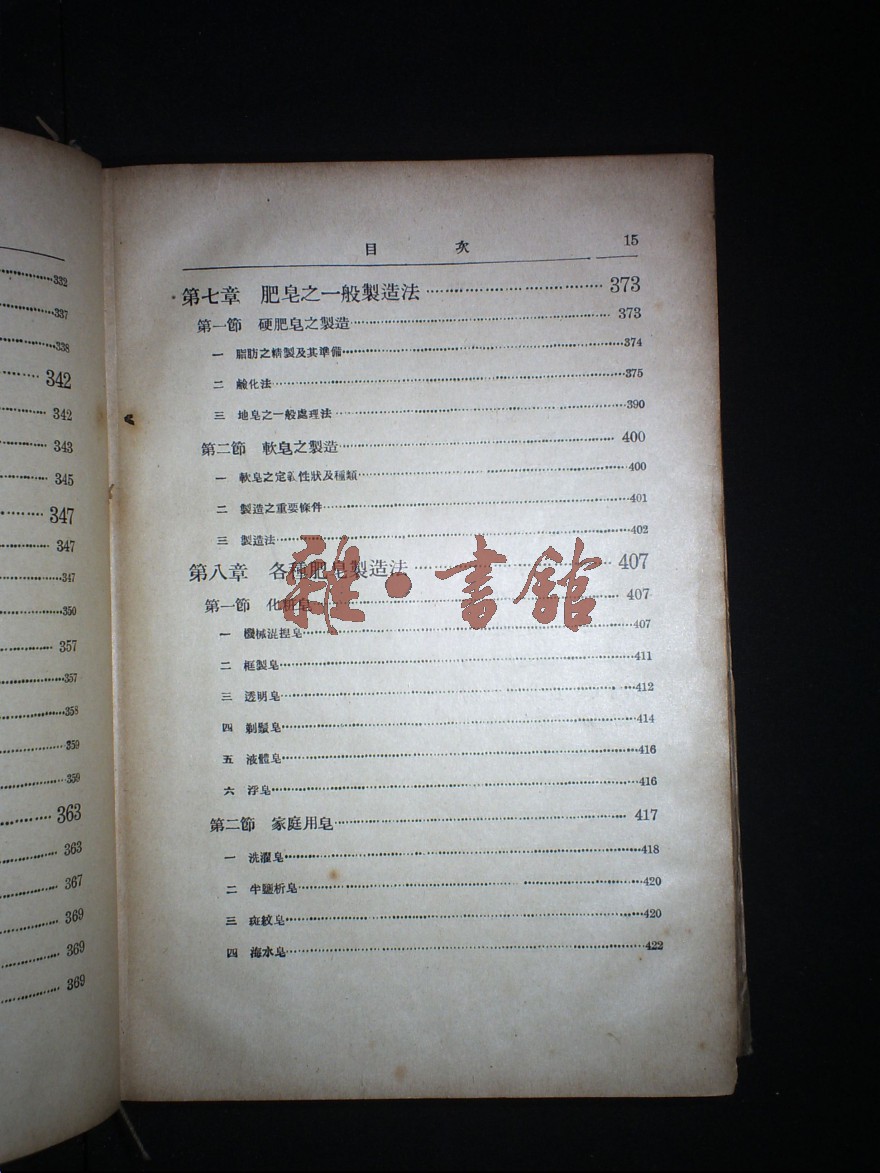 332
337
338
342
342
343
345
347
347
347
350
357
357
358
359
359
363
363
367
369
369
369
目 次 15
第七章 肥皂之一般製造法 373
第一節 硬肥皂之製造 373
一 脂肪之精製及其準備 374
二 鹼化法 375
三 地皂之一般處理法 390
第二節 軟皂之製造 400
一 軟皂之定義性狀及種類 400
二 製造之重要條件 401
三 製造法 402
第八章 各種肥皂製造法 407
第一節 化粧皂 407
一 機械混捏皂 407
二 框製皂 411
三 透明皂 412
四 剃鬚皂 414
五 液體皂 416
六 浮皂 416
第二節 家庭用皂 417
一 洗濯皂 418
二 半鹽析皂 420
三 斑紋皂 420
四 海水皂 422
雜·書館